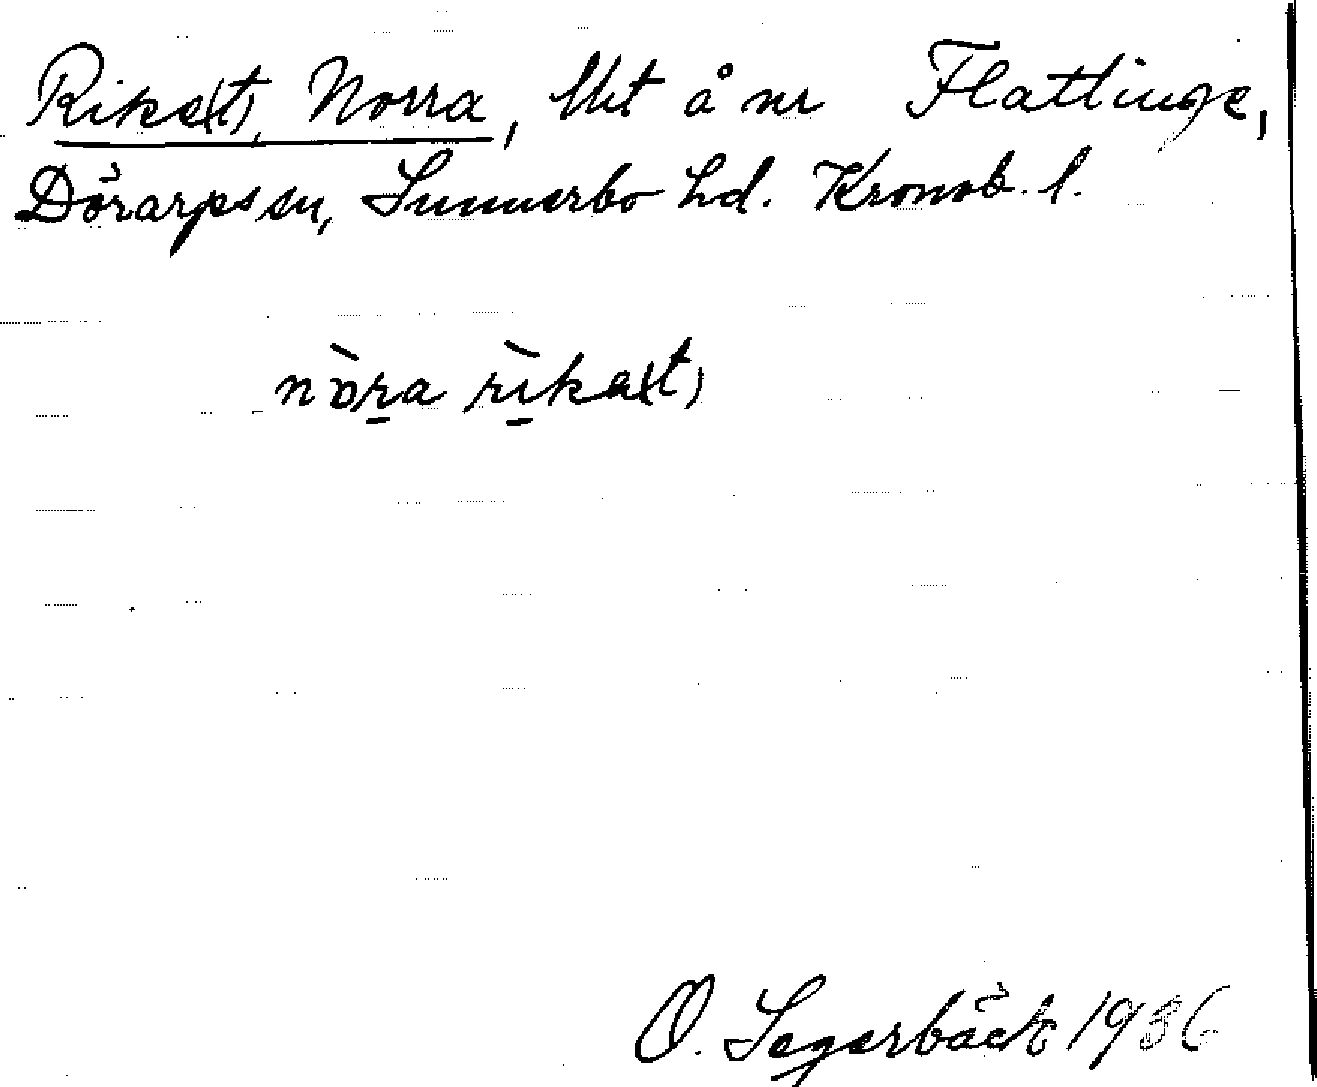 Rike(t), Norra, Utt å nr Flattinge,
Dörarps sn, Sunnerbo hd. Kronob. l.
nòra rìke(t)
O. Segerbäck 1936